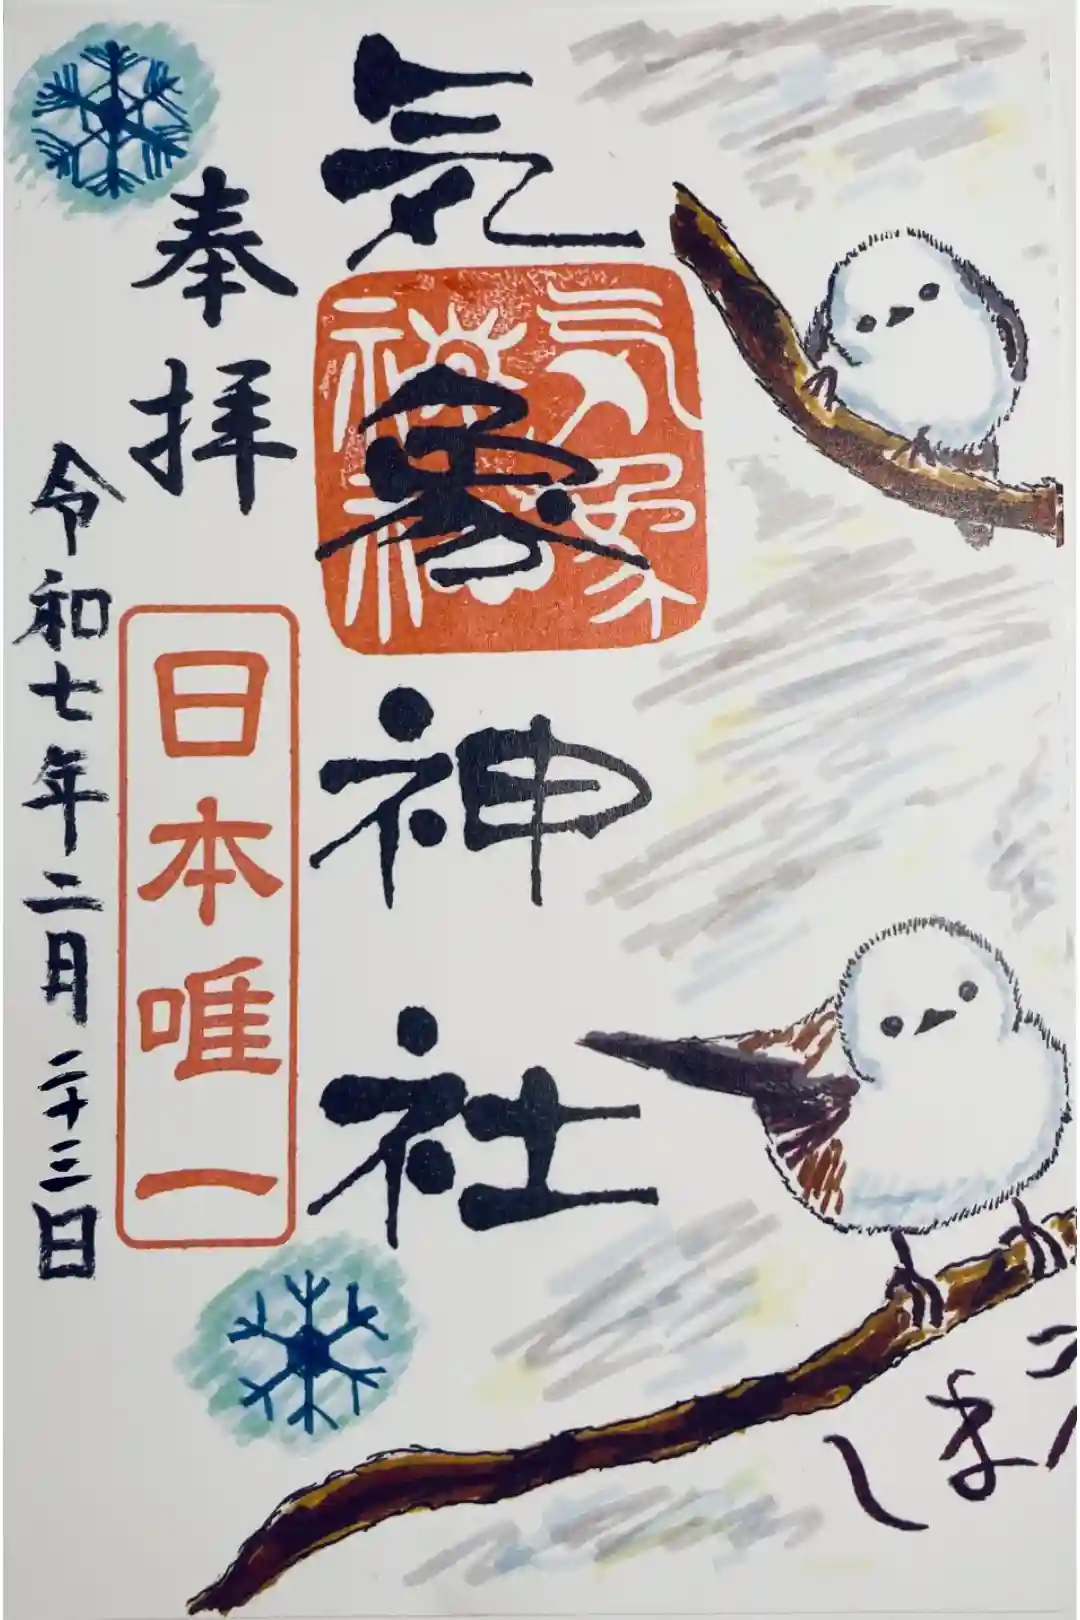 気象神社
気象
神社
奉拝
日本唯一
令和七年二月二十三日